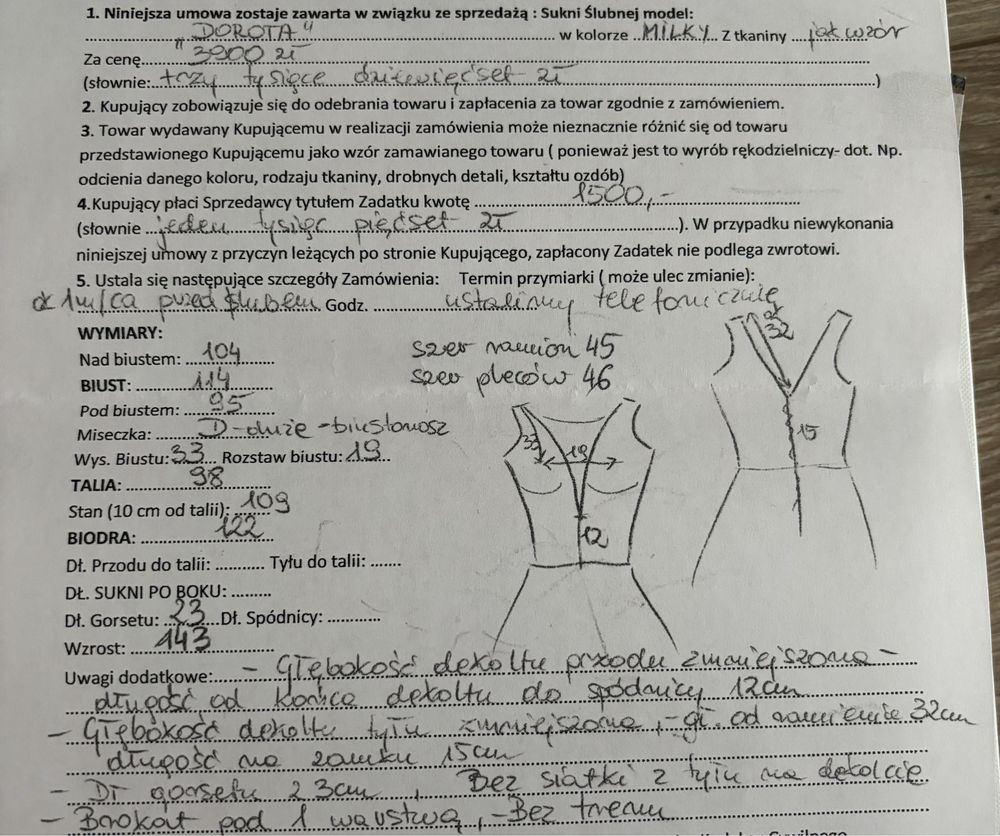 1. Niniejsza umowa zostaje zawarta w związku ze sprzedażą : Sukni Ślubnej model:
"DOROTA" w kolorze MILKY Z tkaniny jak wzór
Za cenę 3900 zł
(słownie: trzy tysiące dziewięćset zł)
2. Kupujący zobowiązuje się do odebrania towaru i zapłacenia za towar zgodnie z zamówieniem.
3. Towar wydawany Kupującemu w realizacji zamówienia może nieznacznie różnić się od towaru
przedstawionego Kupującemu jako wzór zamawianego towaru ( ponieważ jest to wyrób rękodzielniczy- dot. Np.
odcienia danego koloru, rodzaju tkaniny, drobnych detali, kształtu ozdób)
4.Kupujący płaci Sprzedawcy tytułem Zadatku kwotę 1500,-
(słownie jeden tysiąc pięćset zł). W przypadku niewykonania
niniejszej umowy z przyczyn leżących po stronie Kupującego, zapłacony Zadatek nie podlega zwrotowi.
5. Ustala się następujące szczegóły Zamówienia: Termin przymiarki ( może ulec zmianie):
1m/ca przed ślubem Godz. ustalimy telefonicznie
WYMIARY:
Nad biustem: 104
szer ramion 45
BIUST: 114
szer pleców 46
Pod biustem: 95
Miseczka: D-duże -biustonosz
Wys. Biustu: 33 Rozstaw biustu: 19
TALIA: 98
Stan (10 cm od talii): 109
BIODRA: 122
Dł. Przodu do talii: Tyłu do talii:
DŁ. SUKNI PO BOKU:
Dł. Gorsetu: 23 Dł. Spódnicy:
Wzrost: 143
33
19
12
32
15
Uwagi dodatkowe: - Głębokość dekoltu przodu zmniejszona -
długość od końca dekoltu do spódnicy 12cm
- Głębokość dekoltu tyłu zmniejszona, - gł. od ramienia 32cm
długość na zamku 15cm
- Dł gorsetu 23cm, Bez siatki z tyłu na dekolcie
- Brokat pod 1 warstwą, - Bez trenu